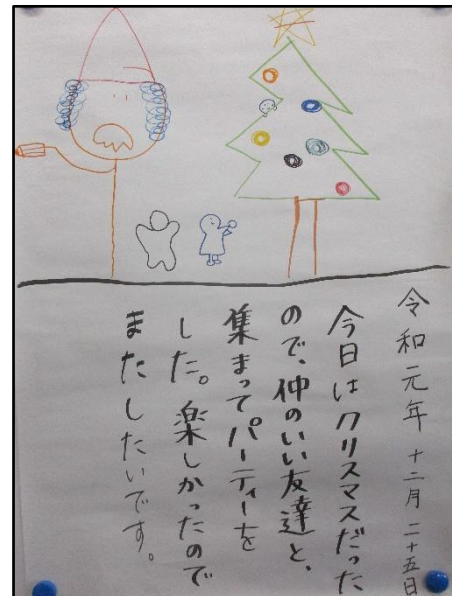 令和元年 十二月 二十五日
今日はクリスマスだった
ので、仲のいい友達と、
集まってパーティーを
した。楽しかったので
またしたいです。